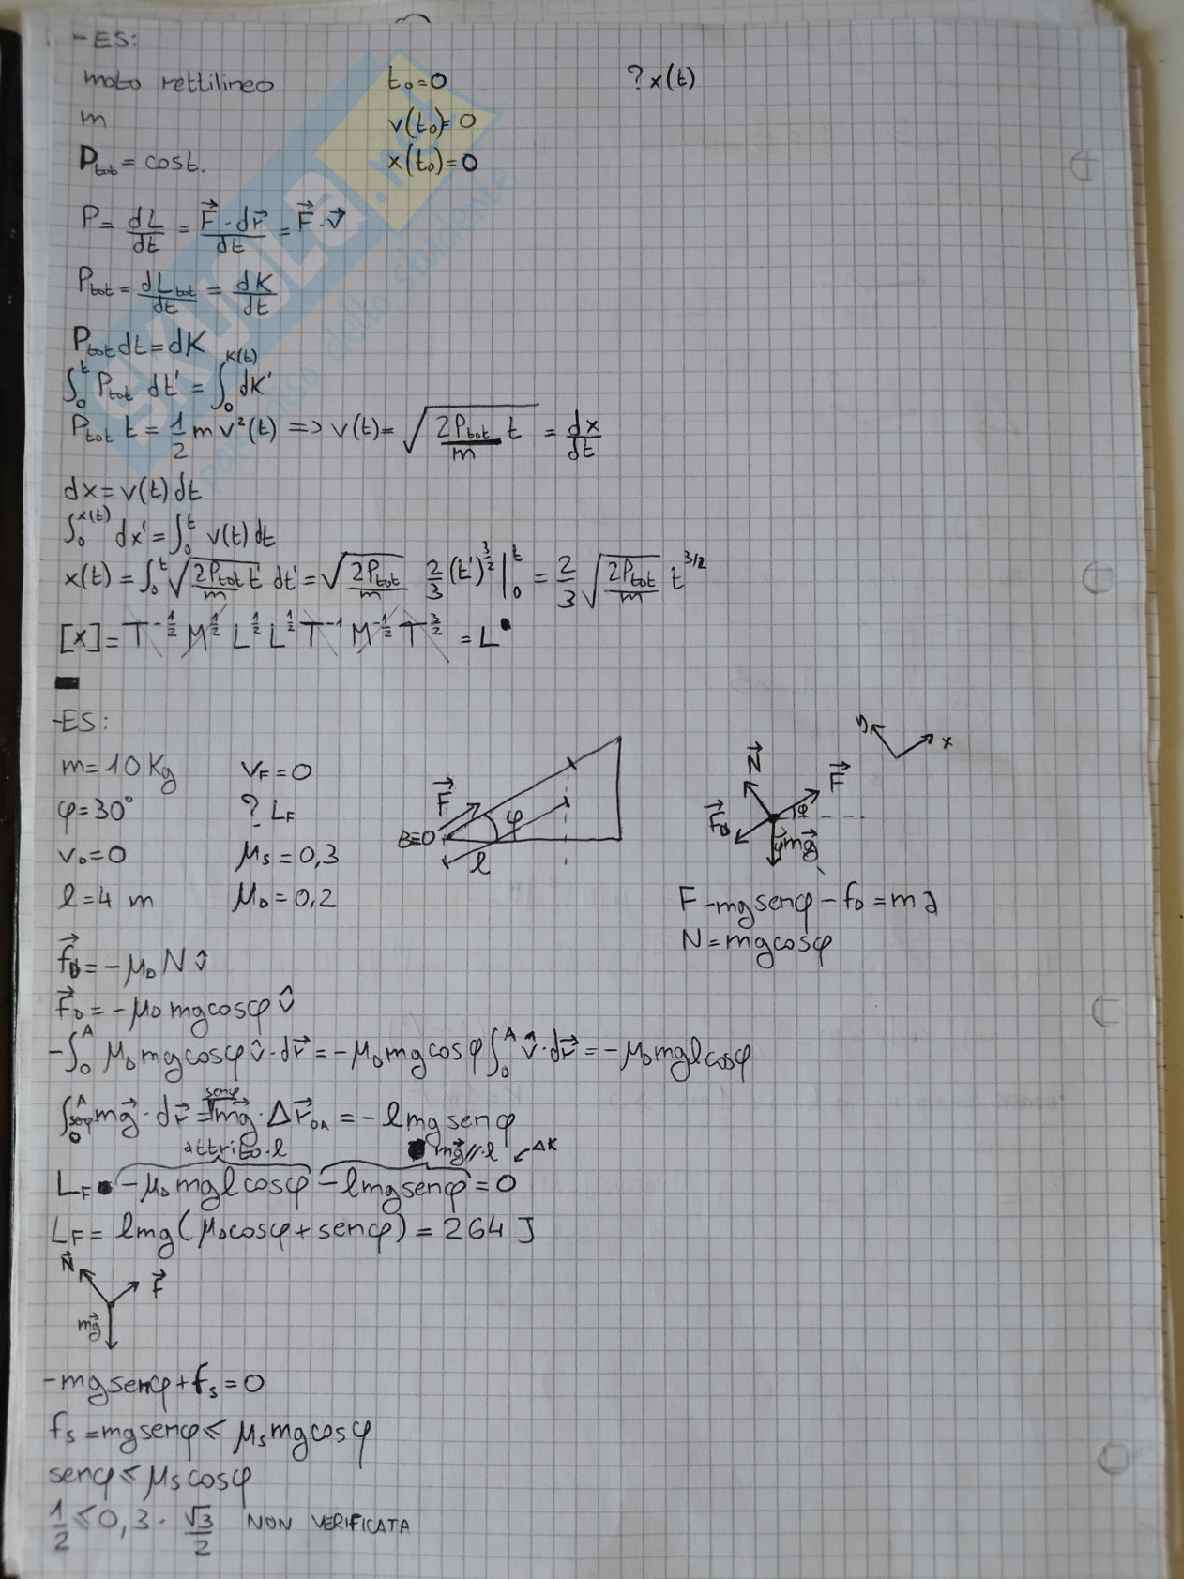 -ES:
moto rettilineo t₀=0 ? x(t)
m v(t₀)=0
Ptot = cost. x(t₀)=0
P = dL/dt = F⃗·dr⃗/dt = F⃗·v⃗
Ptot = dLtot/dt = dK/dt
Ptot dt = dK
∫₀^t Ptot dt' = ∫₀^K(t) dK'
Ptot t = 1/2 m v²(t) => v(t) = √(2Ptot/m t) = dx/dt
dx = v(t) dt
∫₀^x(t) dx' = ∫₀^t v(t) dt
x(t) = ∫₀^t √(2Ptot t'/m) dt' = √(2Ptot/m) 2/3 (t')^3/2 |₀^t = 2/3 √(2Ptot/m) t^3/2
[x] = T^-1/2 M^1/2 L^1/2 L^1/2 T^-1 M^-1/2 T^3/2 = L
-ES:
m = 10 Kg v_F = 0
φ = 30° ? L_F
v₀ = 0 μs = 0,3
l = 4 m μD = 0,2
F⃗ φ l
y x
N⃗ F⃗ φ mg⃗
F - mg senφ - fD = ma
N = mg cosφ
f⃗D = -μD N v̂
F⃗D = -μD mg cosφ v̂
-∫₀^A μD mg cosφ v̂·dr⃗ = -μD mg cosφ ∫₀^A v̂·dr⃗ = -μD mg l cosφ
∫₀^A mg⃗·dr⃗ = mg⃗·Δr⃗OA = -l mg senφ
attrito·l mg⃗//·l ΔK
L_F -μD mg l cosφ - l mg senφ = 0
L_F = l mg (μD cosφ + senφ) = 264 J
N⃗ F⃗
mg⃗
-mg senφ + fs = 0
fs = mg senφ ≤ μs mg cosφ
senφ ≤ μs cosφ
1/2 ≤ 0,3 · √3/2 NON VERIFICATA
SKUOLA.net